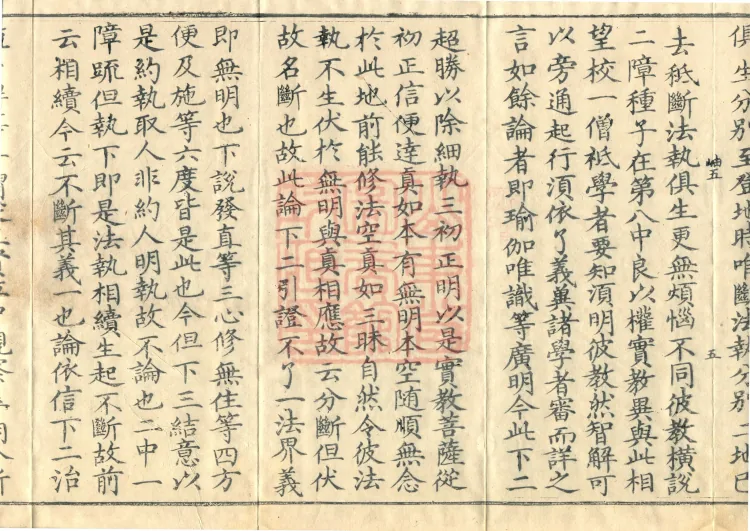 俱生分別至登地時唯斷法執分別二地已
岫五
五
去秪斷法執俱生更無煩惱不同彼教橫說
二障種子在第八中良以權實教異與此相
望校一僧祇學者要知須明彼教然智解可
以旁通起行須依了義葉諸學者審而詳之
言如餘論者即瑜伽唯識等廣明今此下二
超勝以除細執三初正明以是實教菩薩從
初正信便達真如本有無明本空隨順無念
於此地前能修法空真如三昧自然令彼法
執不生伏於無明與真相應故云分斷但伏
故名斷也故此論下二引證不了一法界義
即無明也下說發直等三心修無住等四方
便及施等六度皆是此也今但下三結意以
是約執取人非約人明執故不論也二中一
障䟽但執下即是法執相續生起不斷故前
云相續今云不斷其義一也論依信下二治